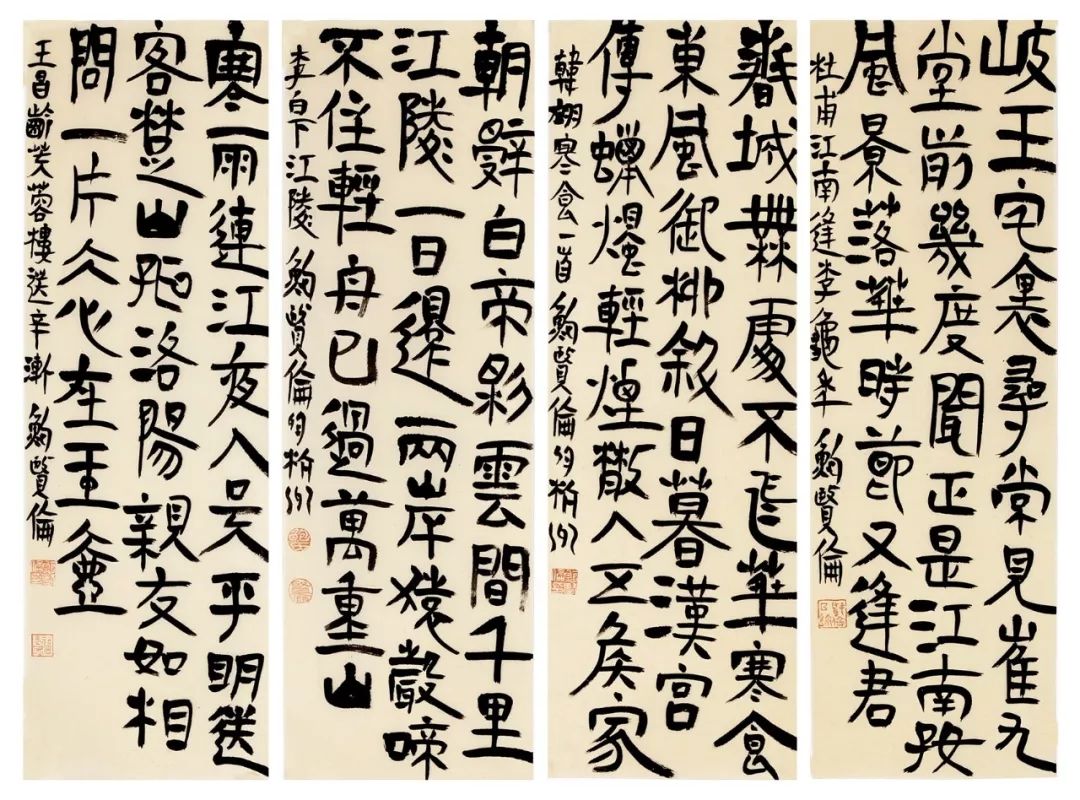 岐王宅裏尋常見崔九
堂前幾度聞正是江南好
風景落華時節又逢君
杜甫江南逢李龜年 鮑賢倫
春城無處不飛華寒食
東風御柳斜日暮漢宮
傳蠟燭輕煙散入五侯家
韓翃寒食一首 鮑賢倫
朝辭白帝彩雲間千里
江陵一日還兩岸猿聲啼
不住輕舟已過萬重山
李白下江陵 鮑賢倫
寒雨連江夜入吳平明送
客楚山孤洛陽親友如相
問一片冰心在玉壺
王昌齡芙蓉樓送辛漸 鮑賢倫